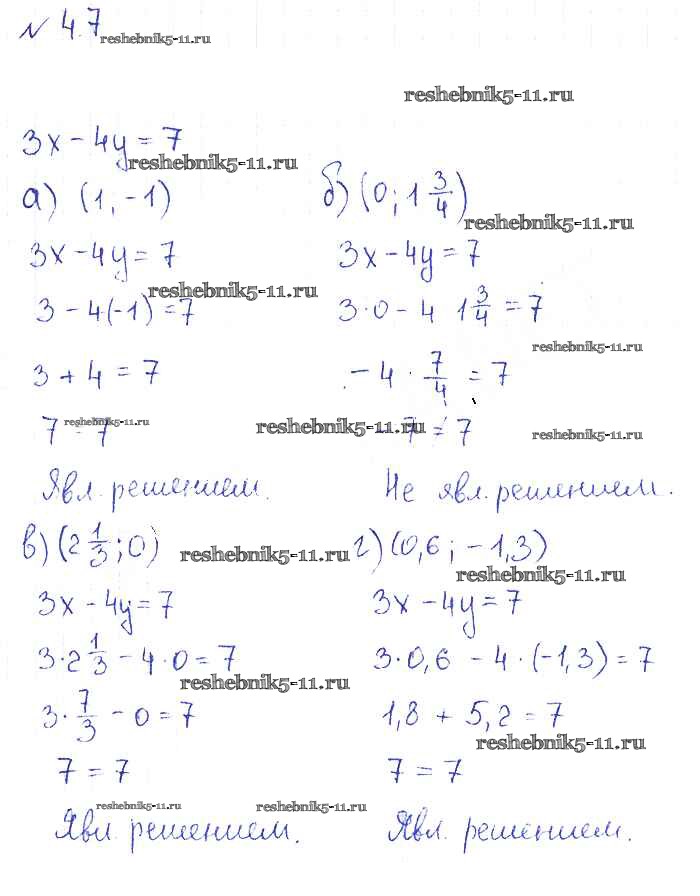 № 4.7
reshebnik5-11.ru
reshebnik5-11.ru
3x - 4y = 7
reshebnik5-11.ru
а) (1, -1)
3x - 4y = 7
reshebnik5-11.ru
3 - 4(-1) = 7
3 + 4 = 7
7 = 7
reshebnik5-11.ru
Явл. решением.
б) (0; 1 3/4)
reshebnik5-11.ru
3x - 4y = 7
3·0 - 4 1 3/4 = 7
reshebnik5-11.ru
-4 · 7/4 = 7
-7 = 7
reshebnik5-11.ru
reshebnik5-11.ru
Не явл. решением.
в) (2 1/3; 0)
reshebnik5-11.ru
3x - 4y = 7
3·2 1/3 - 4·0 = 7
reshebnik5-11.ru
3·7/3 - 0 = 7
7 = 7
reshebnik5-11.ru
Явл. решением.
г) (0,6; -1,3)
reshebnik5-11.ru
3x - 4y = 7
3·0,6 - 4·(-1,3) = 7
1,8 + 5,2 = 7
reshebnik5-11.ru
7 = 7
reshebnik5-11.ru
Явл. решением.